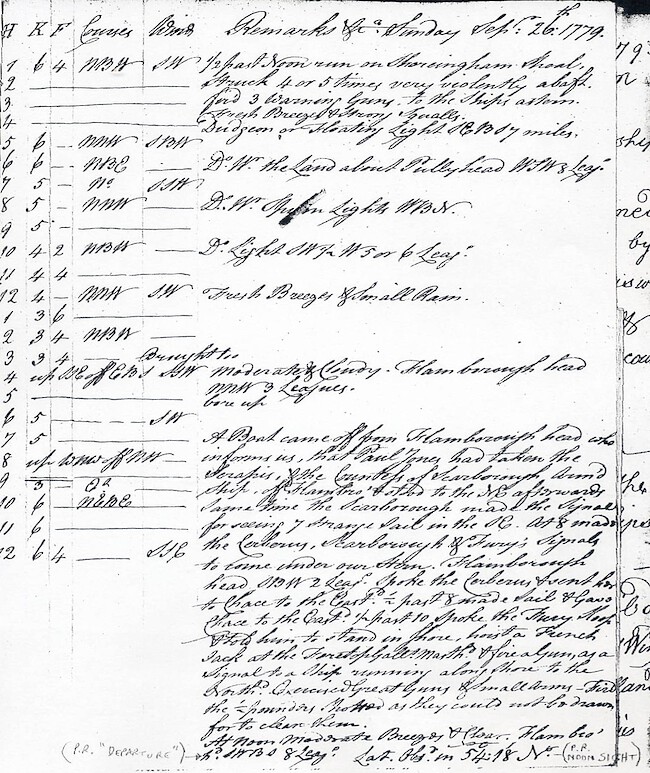 H K F Courses Wind Remarks &c.a Sunday Sep.r 26.th 1779.
1 6 4 NBW SW 1/2 past Noon run on Sheringham Shoal,
2 Struck 4 or 5 times very violently abaft.
3 fired 3 Warning Guns to the Ships astern.
4 Fresh Breezes & Strong Squalls.
Dudgeon or Floating Light SEBS 7 miles.
5 6 - NNW SBW
6 6 - NBE D.o W.r the Land about Pullyhead WSW 8 Leag.s
7 5 - N.o SSW
8 5 - NNW D.o W.r Spurn Lights WBN.
9 5
10 4 2 NBW D.o Light SW 1/2 W 5 or 6 Leag.s
11 4 4
12 4 - NNW SW Fresh Breezes & Small Rain.
1 3 6
2 3 4 NBW
3 3 4 Brought to
4 up SE off EBS SBW Moderate & Cloudy. Flamborough head
5 NNW 3 Leagues.
bore up
6 5 SW
7 5 A Boat came off from Flamborough head who
8 up WNW off NW informs us, that Paul Jones had taken the
9 3 - D.o Serapis, & the Countess of Scarborough Arm'd
10 6 - NEBE Ship, off Flambro' & stood to the NE afterwards
Same time the Scarborough made the Signal
11 6 for seeing 7 strange Sail in the SE. At 8 made
12 6 4 SSE the Cerberus, Scarborough & Fury's Signals
to come under our Stern. Flamborough
head SBW 2 Leag.s Spoke the Cerberus & sent her
to Chace to the East.d 1/2 past 8 made Sail & Gave
Chace to the East.d 1/2 past 10 spoke the Fury Sloop
& told him to stand in shore, hoist a French
Jack at the Foretopgall.t Masth.d & fire a Gun, as a
Signal to a Ship running along shore to the
North.d Exercised Great Guns & Small Arms - Fired
the 1/2 pounders Shotted as they could not be drawn
for to clean them.
At Noon Moderate Breezes & Clear. Flambro'
(P.R. "DEPARTURE") h.d SWBS 8 Leag.s Lat. Obs.d in 54.18 N.o (P.R. NOON SIGHT)